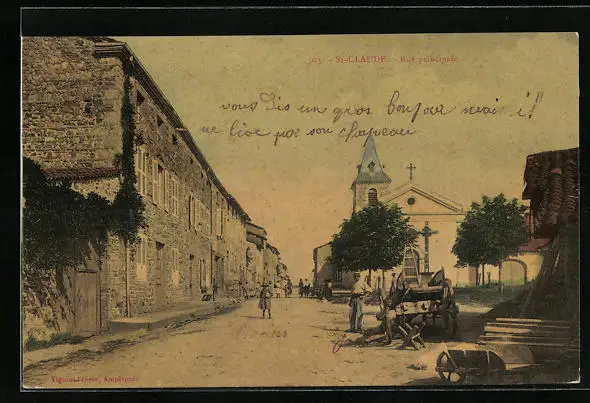 503. - St-CLAUDE. - Rue principale
vous Dis un gros bonjour mais il
ne lève pas son chapeau
Vignon Frères, Ampepuis